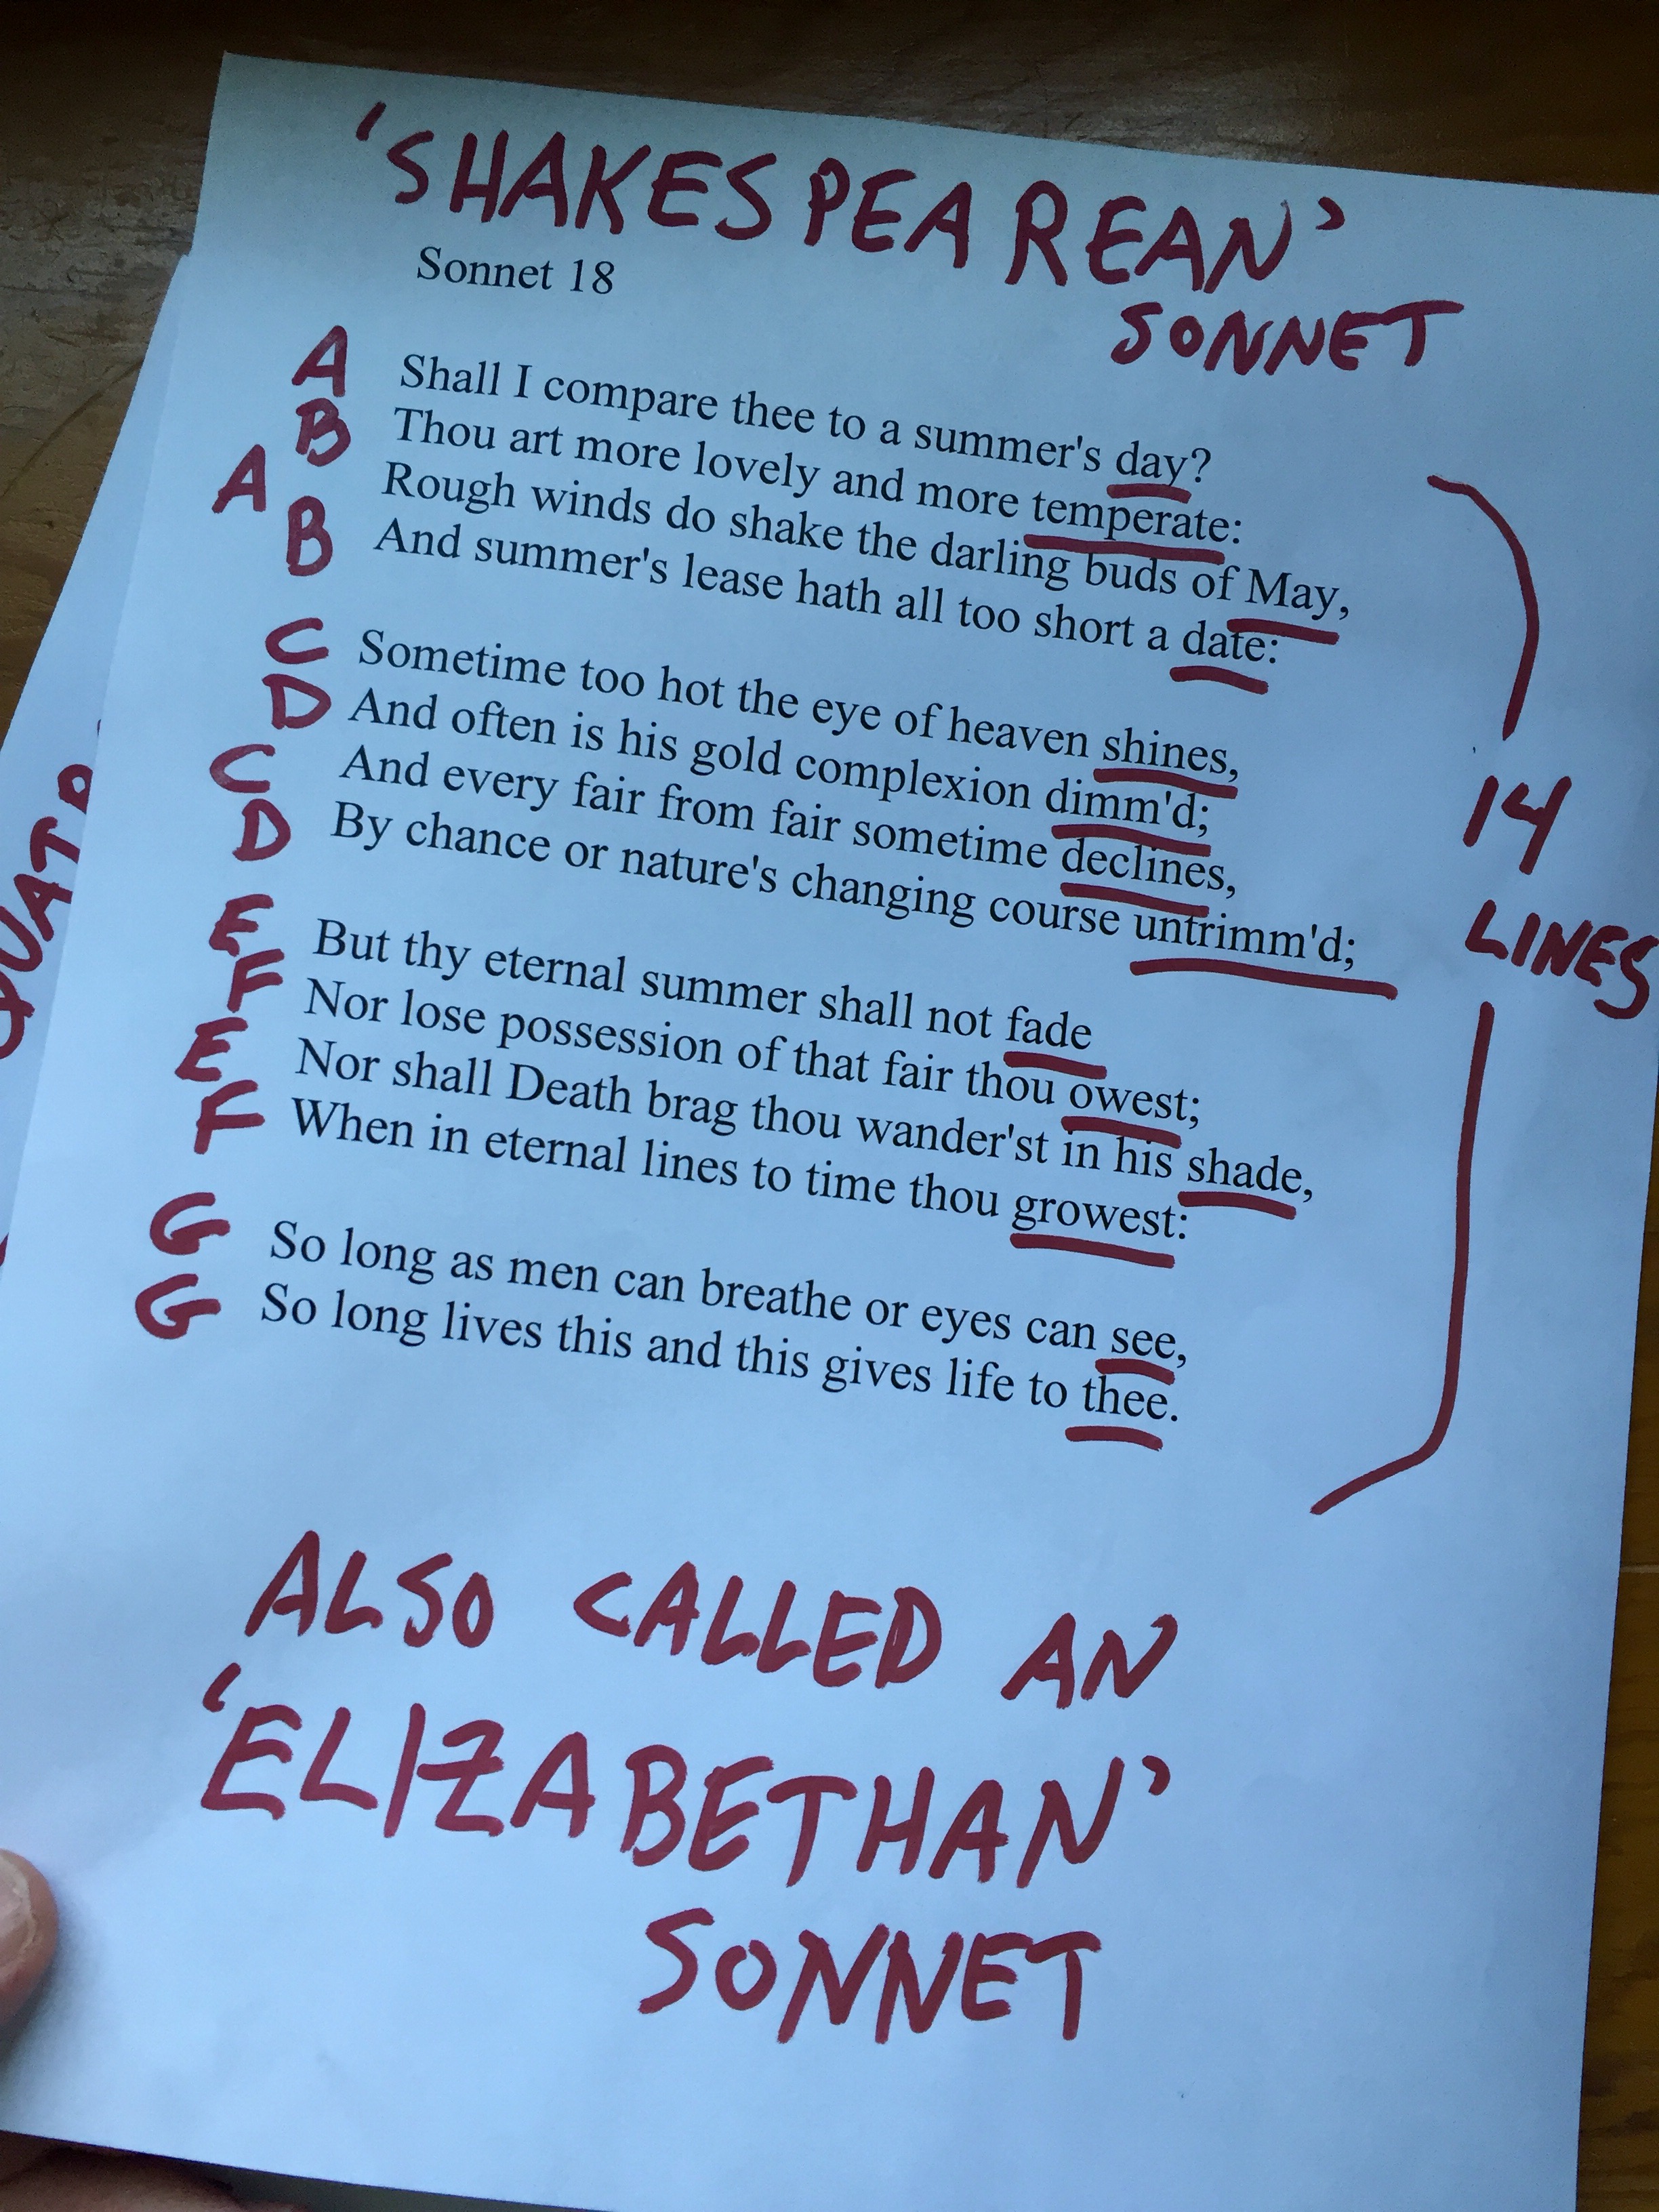 'SHAKESPEAREAN'
SONNET
Sonnet 18
A Shall I compare thee to a summer's day?
B Thou art more lovely and more temperate:
A Rough winds do shake the darling buds of May,
B And summer's lease hath all too short a date:
C Sometime too hot the eye of heaven shines,
D And often is his gold complexion dimm'd;
C And every fair from fair sometime declines,
D By chance or nature's changing course untrimm'd;
E But thy eternal summer shall not fade
F Nor lose possession of that fair thou owest;
E Nor shall Death brag thou wander'st in his shade,
F When in eternal lines to time thou growest:
G So long as men can breathe or eyes can see,
G So long lives this and this gives life to thee.
14
LINES
ALSO CALLED AN
'ELIZABETHAN'
SONNET